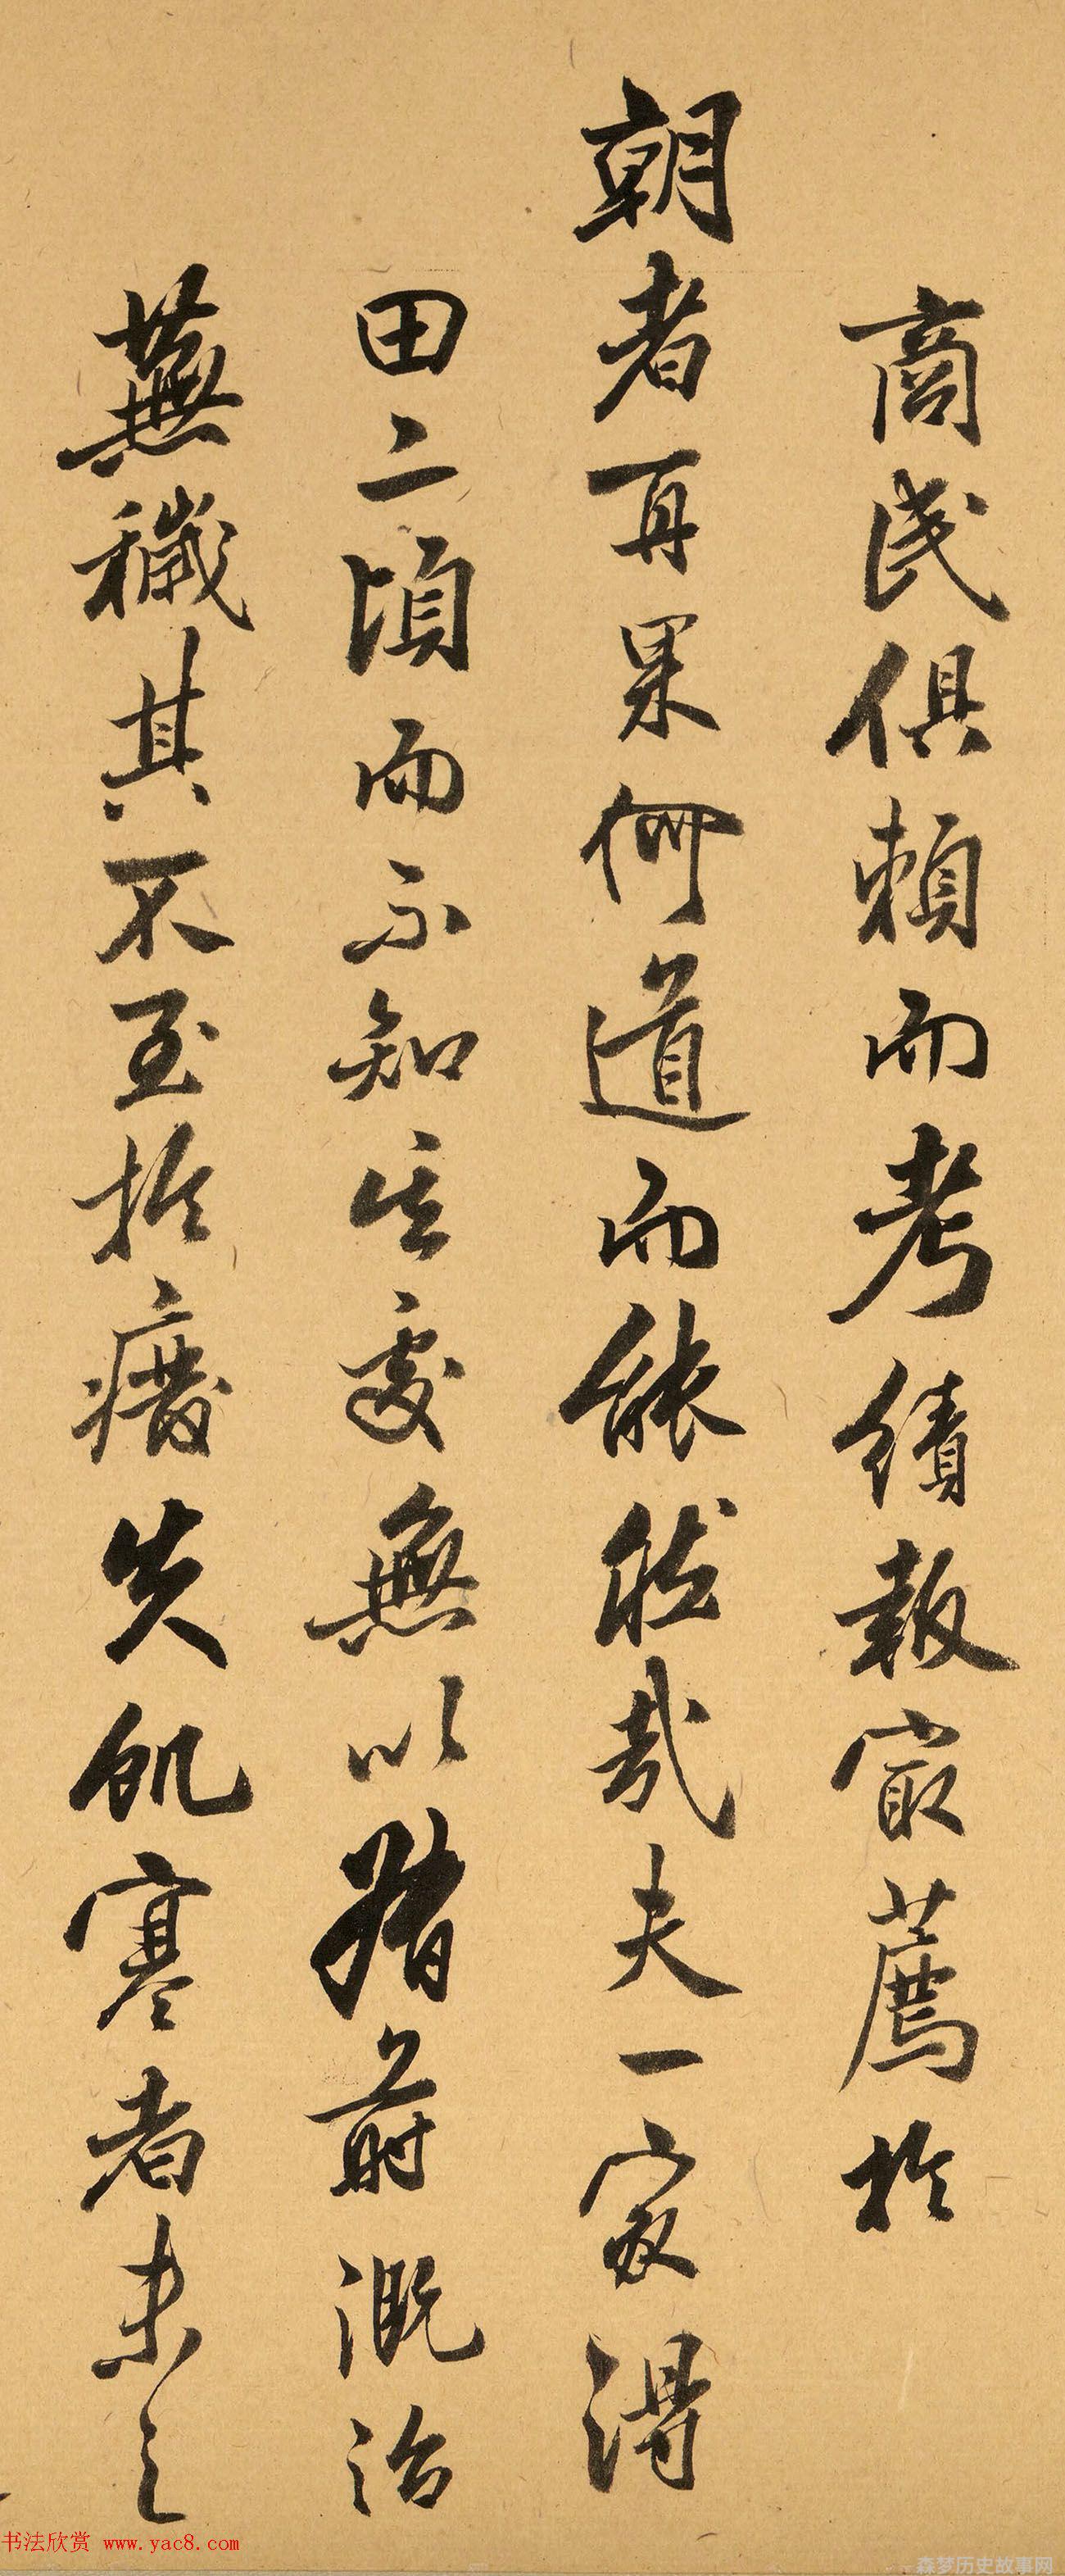 商民俱賴而考績報最薦於
朝者再果何道而能然哉夫一家得
田二頃而不知處無以豬溉治
蕪穢其不至於癈失飢寒者未之
书法欣赏 www.yac8.com
森梦历史故事网